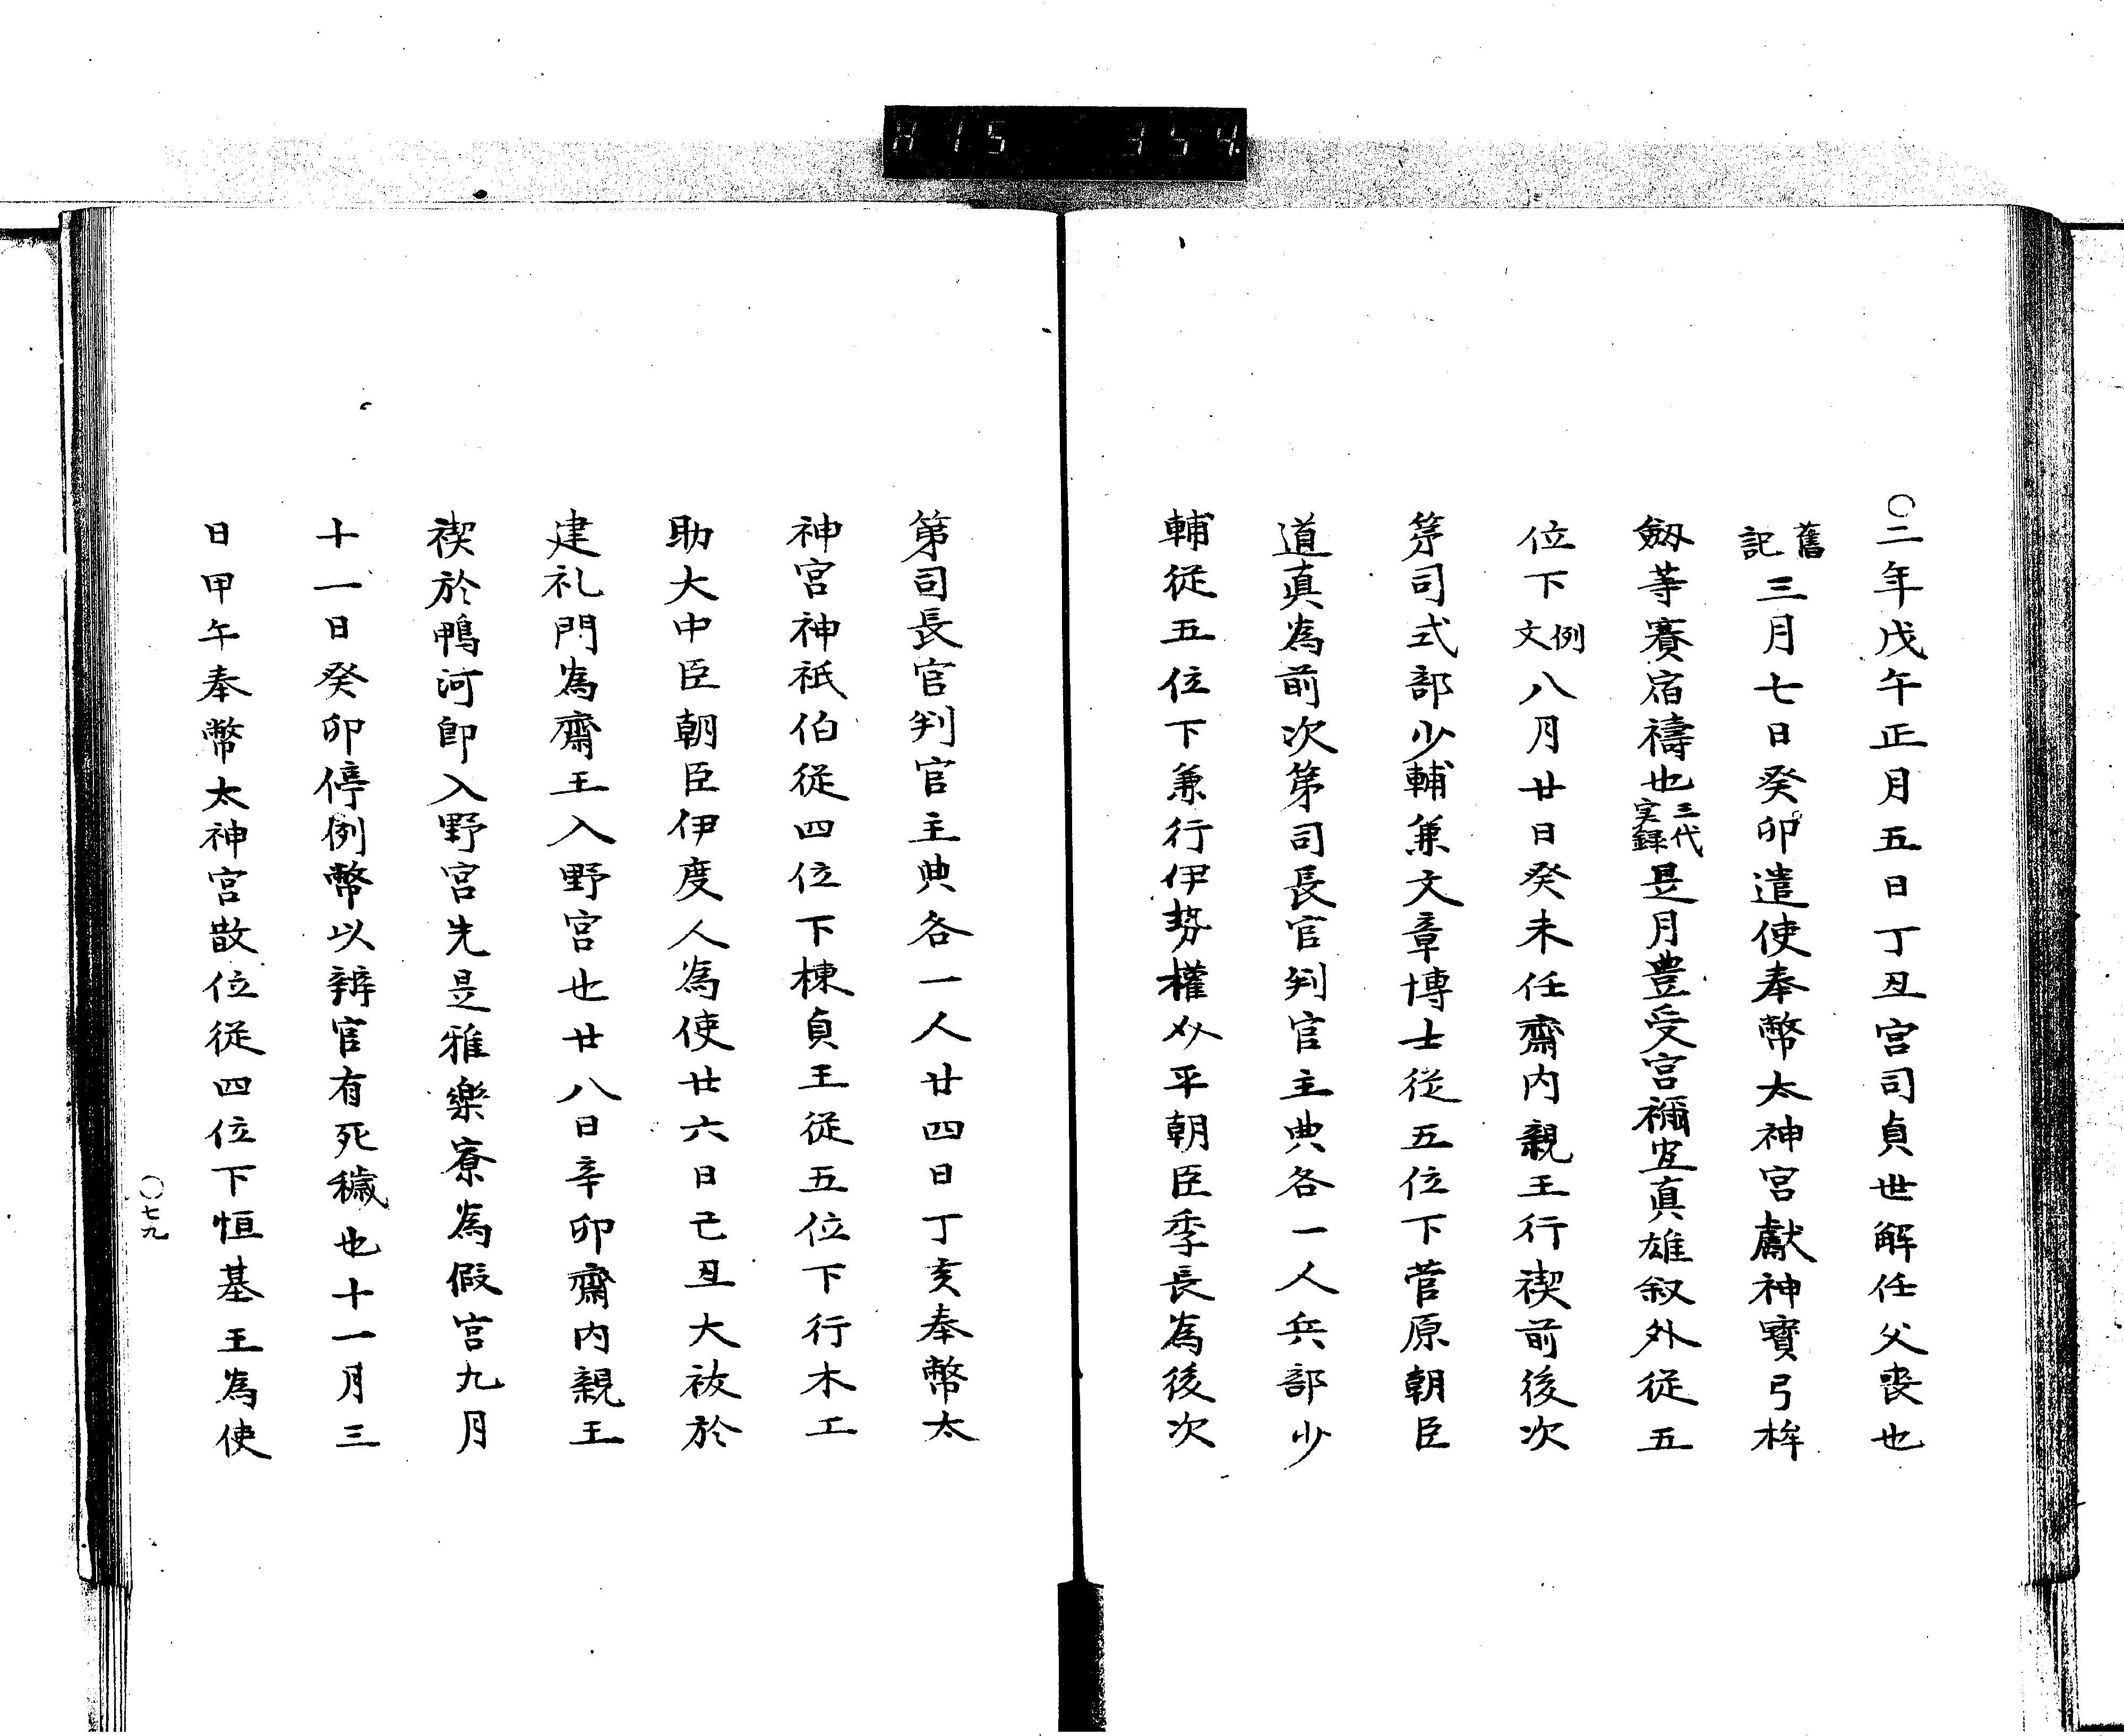 H15 354.
〇二年戊午正月五日丁丑宮司貞世解任父喪也
舊記三月七日癸卯遣使奉幣太神宮獻神寳弓桙
劔等賽宿禱也三代実録是月豊受宮禰宜真雄叙外從五
位下例文八月廿日癸未任齋内親王行禊前後次
第司式部少輔兼文章博士從五位下菅原朝臣
道真為前次第司長官判官主典各一人兵部少
輔從五位下兼行伊勢權介平朝臣季長為後次
第司長官判官主典各一人廿四日丁亥奉幣太
神宮神祇伯從四位下棟貞王從五位下行木工
助大中臣朝臣伊度人為使廿六日己丑大祓於
建礼門為齋王入野宮也廿八日辛卯齋内親王
禊於鴨河卽入野宮先是雅樂寮為假宮九月
十一日癸卯停例幣以辨官有死穢也十一月三
日甲午奉幣太神宮散位從四位下恒基王為使
〇七九